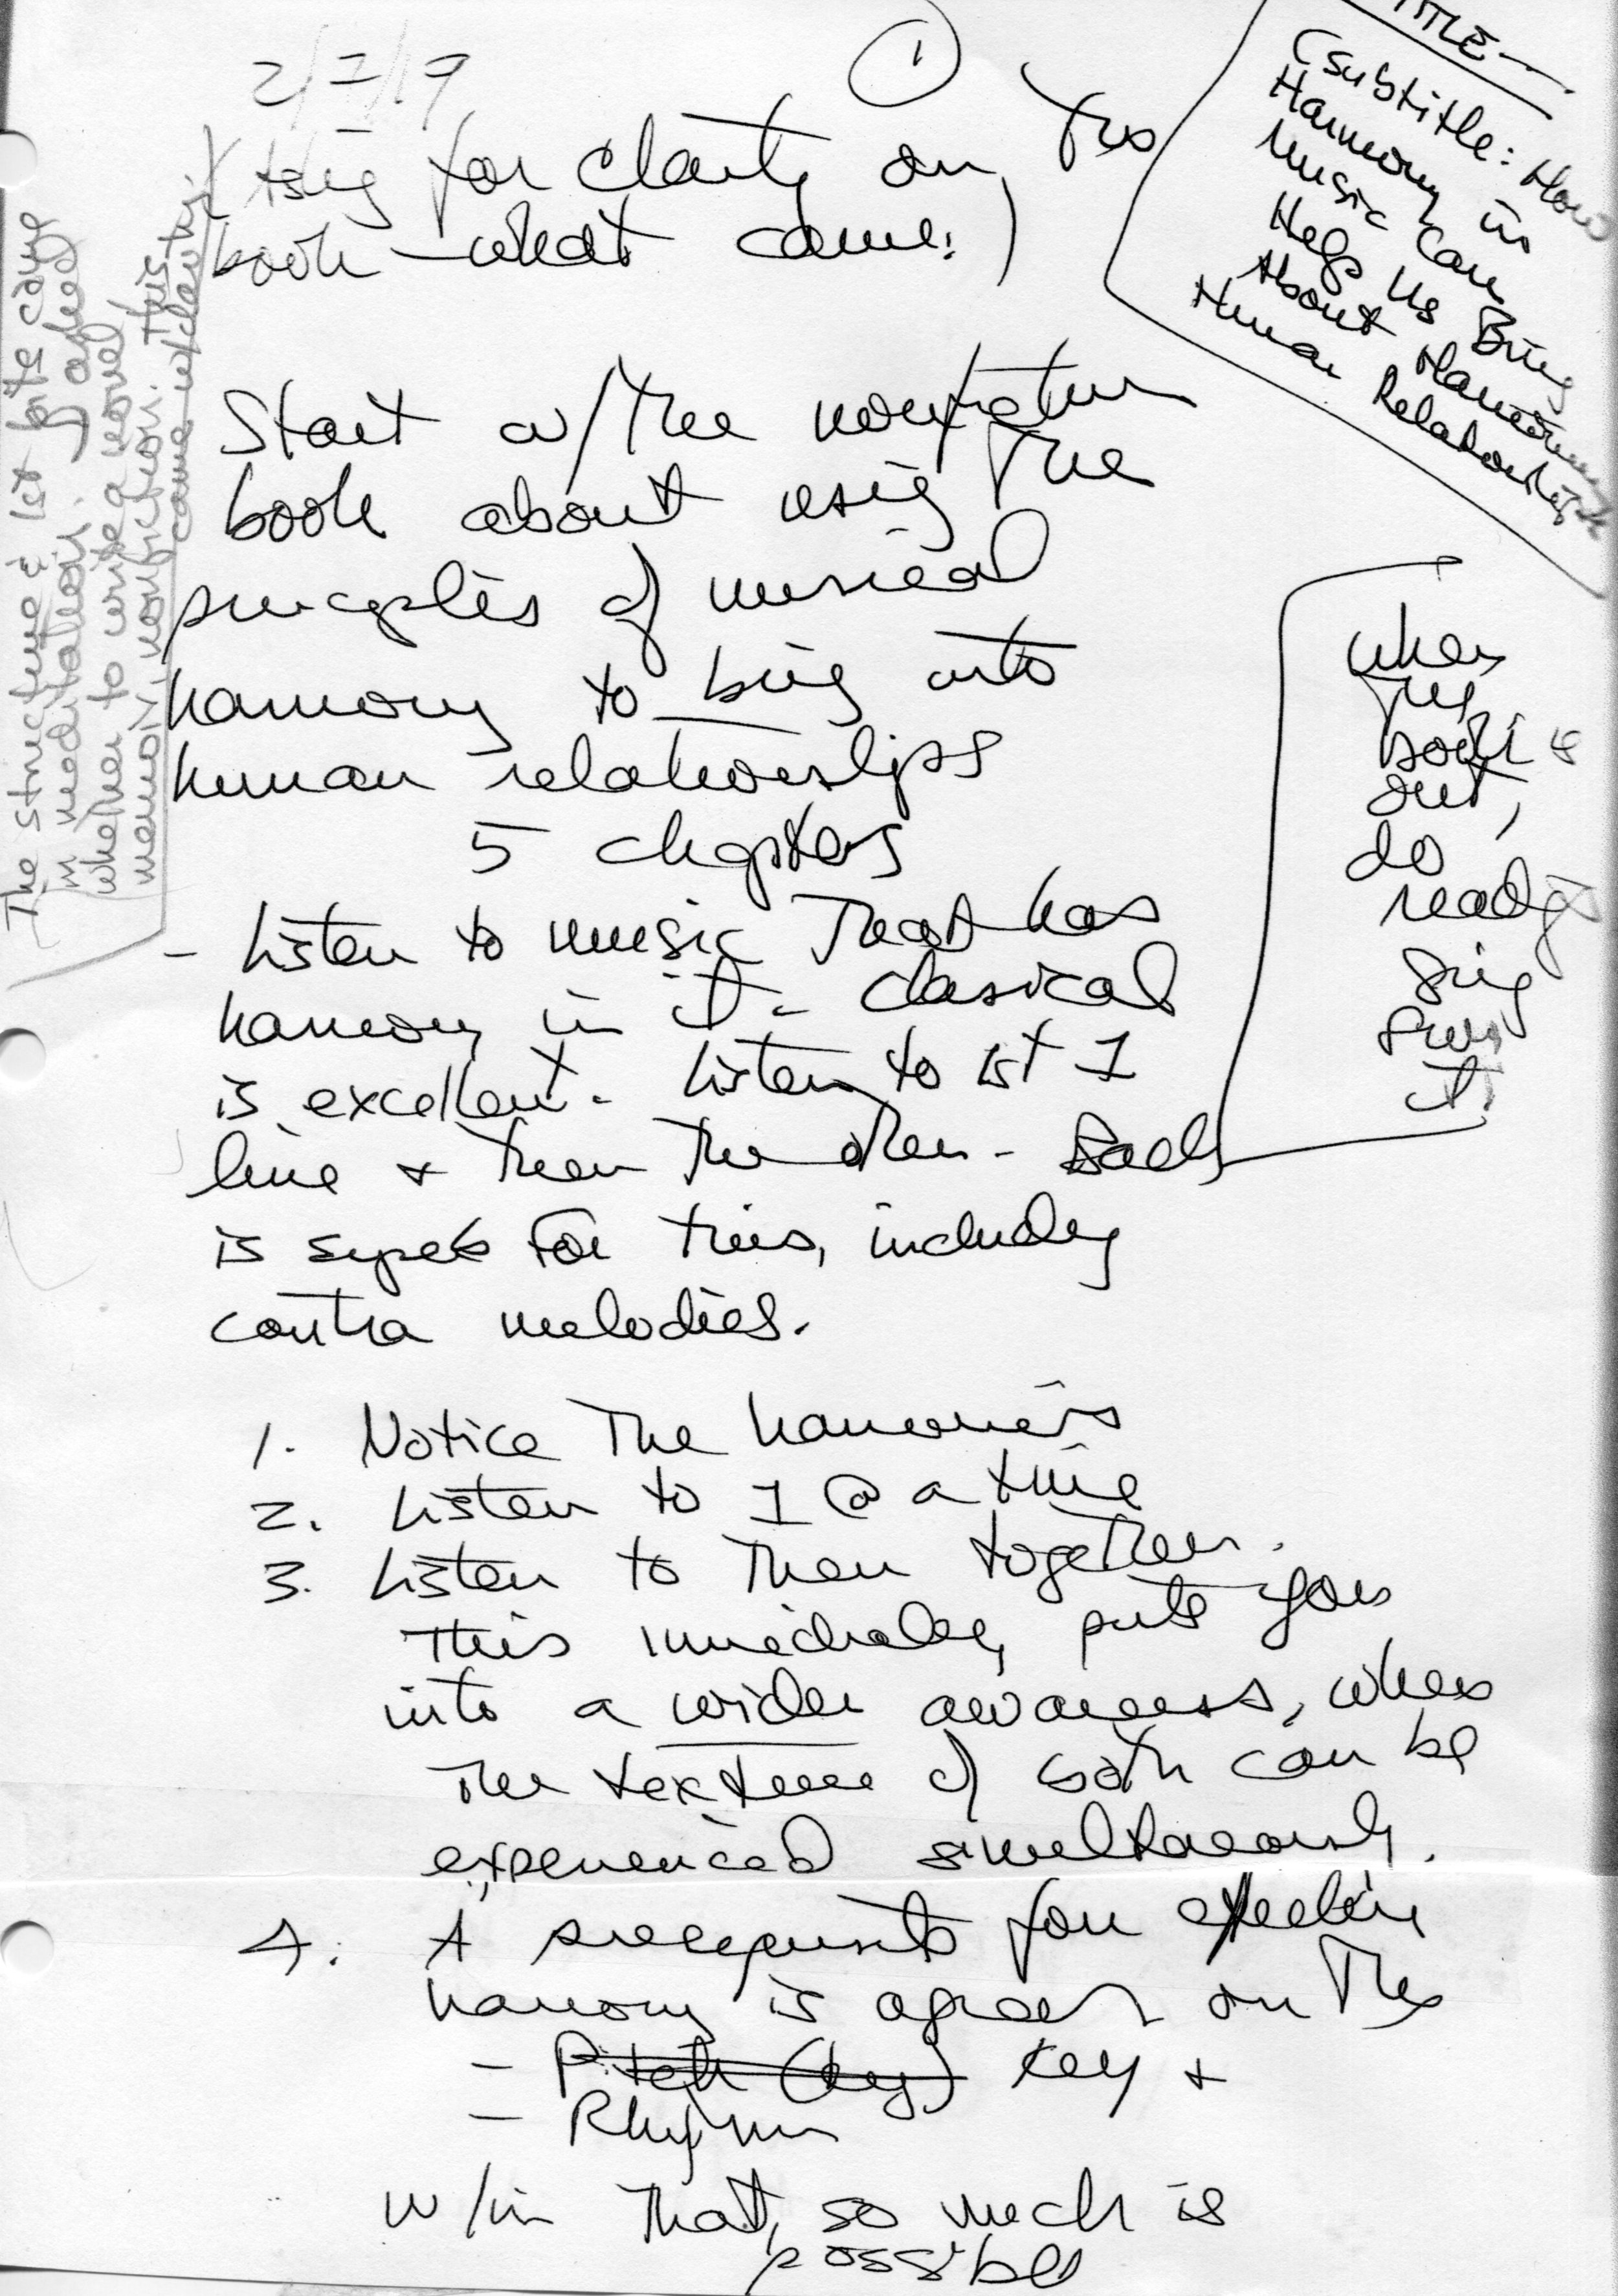 2/7/19
①
(Asking for clarity on this
book - what came:)
TITLE -
(subtitle: How
Harmony in
Music Can
Help Us Bring
About Harmony in
Human Relationships
The structure & 1st bits came
in meditation. I asked
whether to write a novel,
memoir, nonfiction. This
came
Start w/the nonfiction
book about using the
principles of musical
harmony to bring into
human relationships
5 chapters
- Listen to music that has
harmony in it - clasical
is excellent. Listen to 1st 1
line + then the other - Bach
is superb for this, including
contra melodies.
when
the
book is
out,
do
readgs
Sing
it!
1. Notice the harmonies
2. Listen to 1 @ a time
3. Listen to them together.
This immediately puts you
into a wider awareness, where
the texture of both can be
experienced simultaneously.
4. A prerequisite for effective
harmony is agreemt on the
- Pitch (key) Key +
- Rhythm
w/in that, so much is
possible